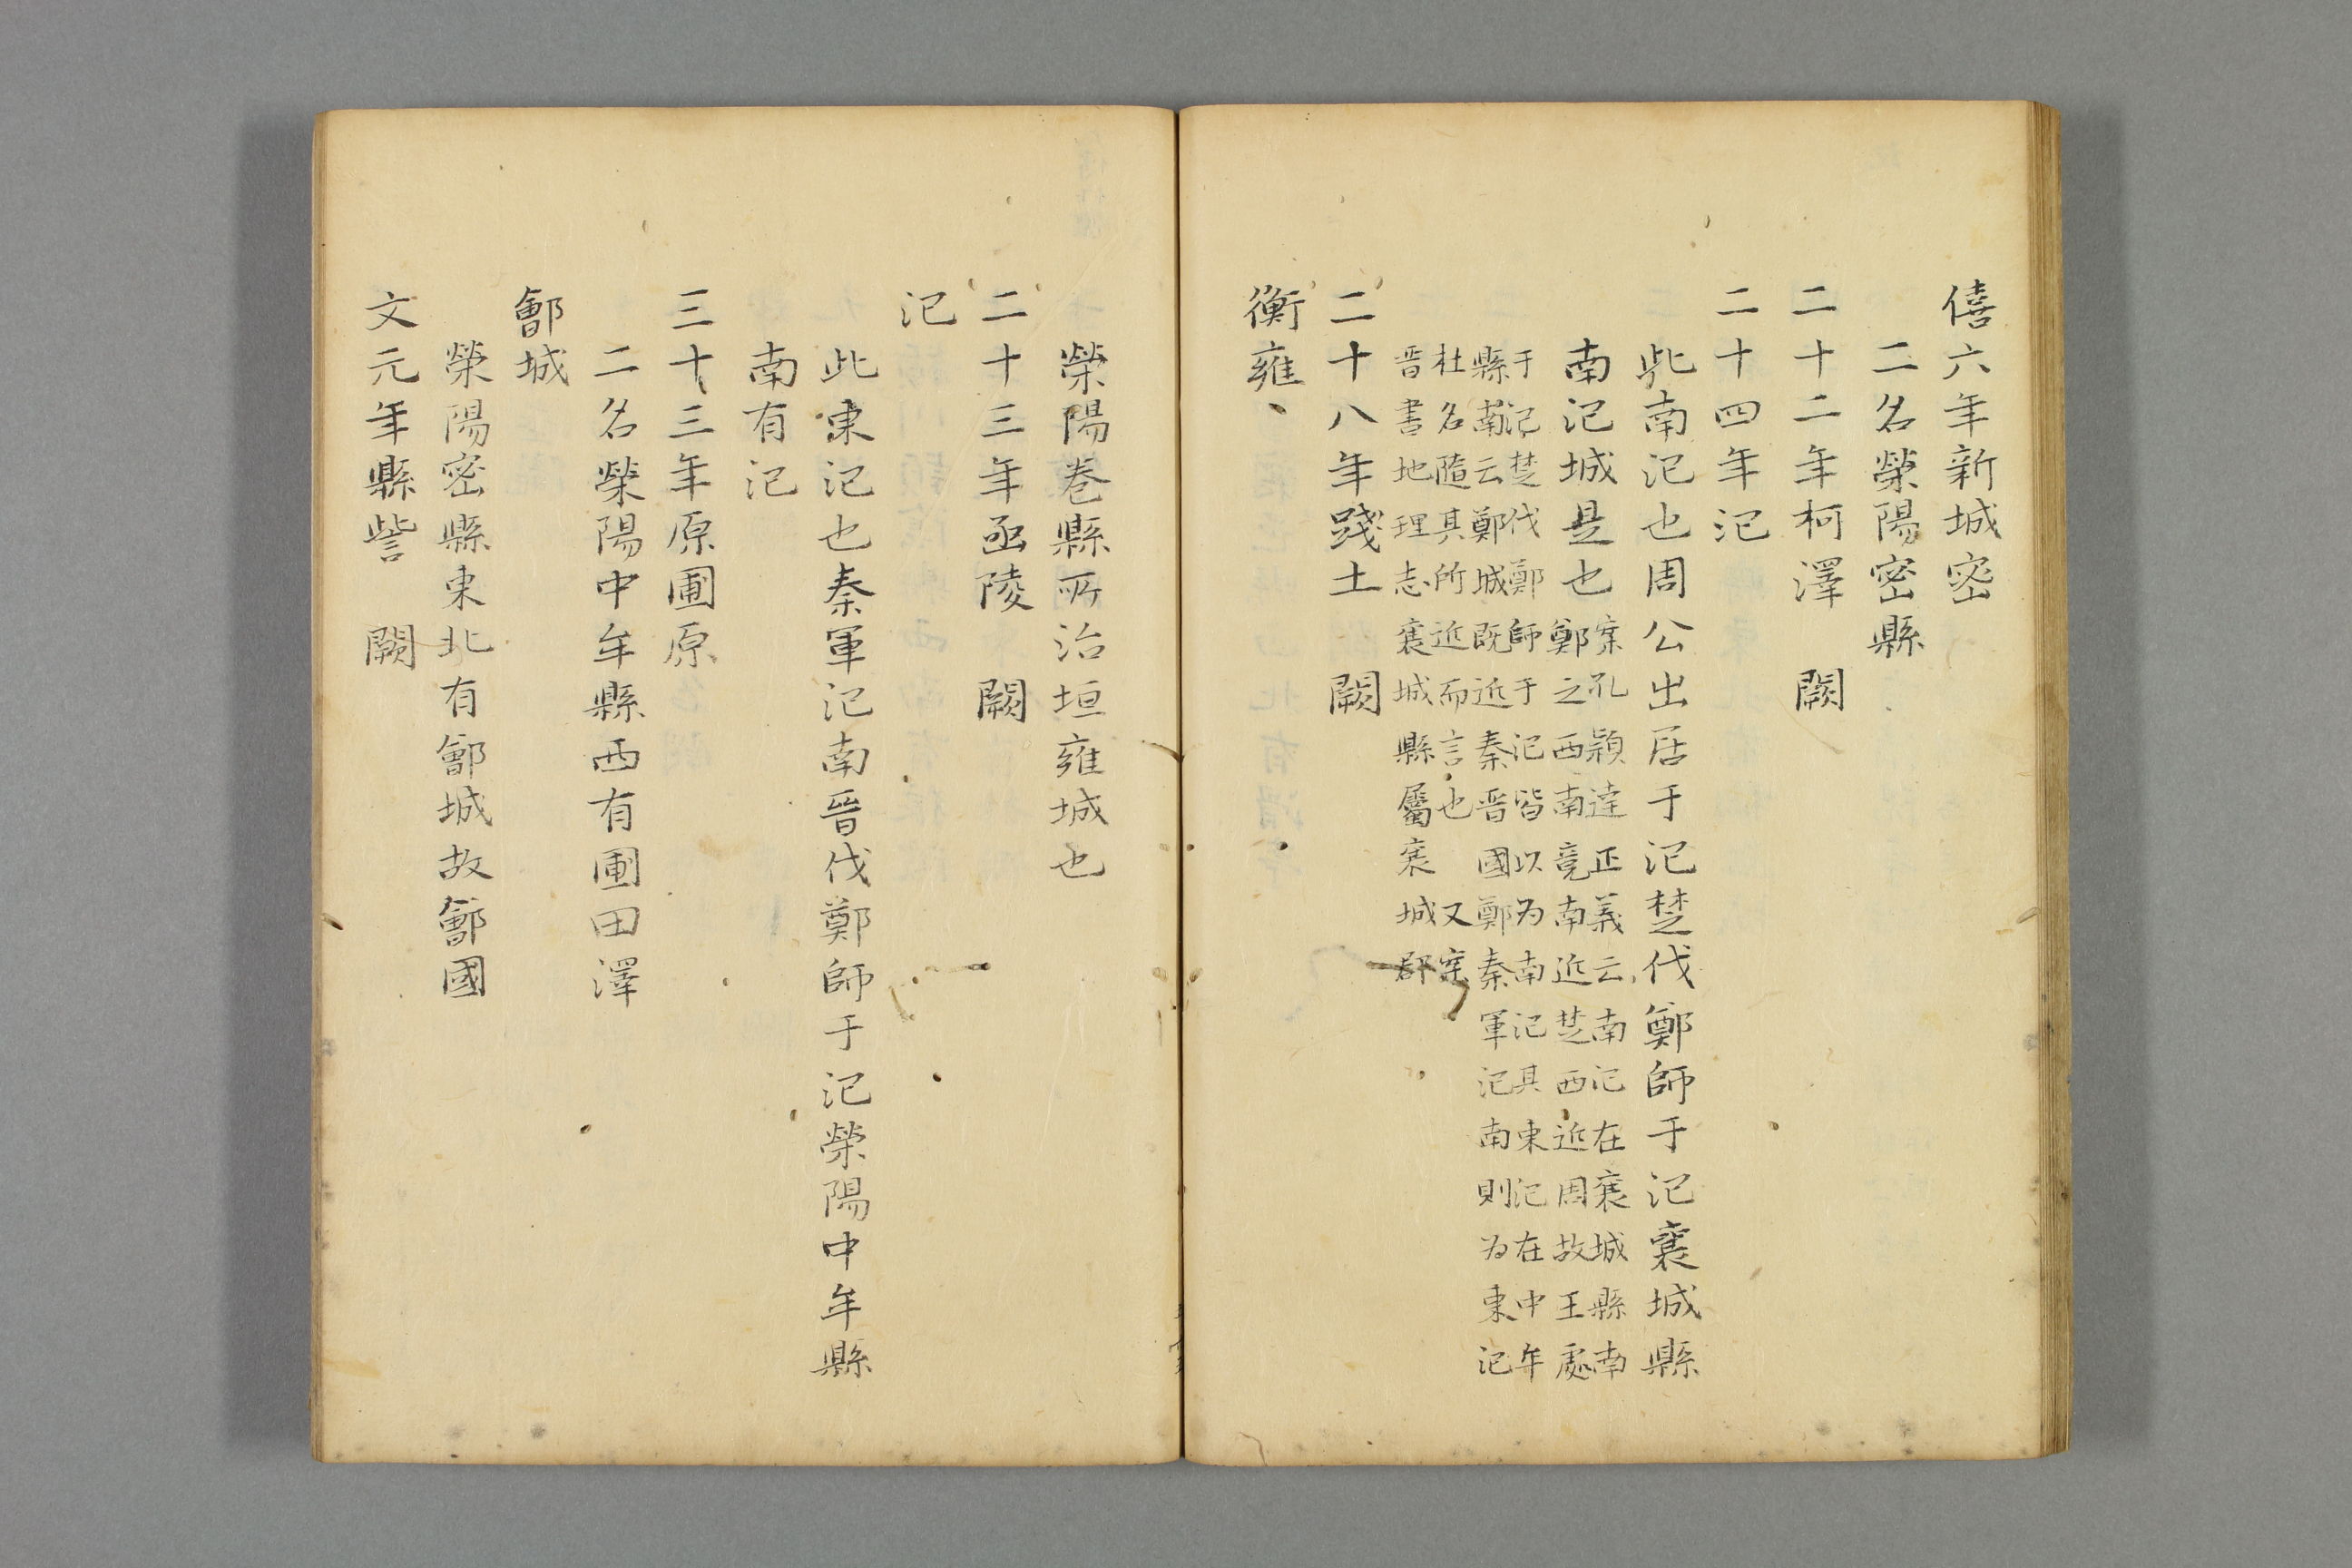 僖六年新城密
二名榮陽密縣
二十二年柯澤　闕
二十四年汜
此南汜也周公出居于汜楚伐鄭師于汜襄城縣
南汜城是也
案孔穎達正義云南汜在襄城縣南
鄭之西南竟南近楚西近周故王處
于汜楚伐鄭師于汜皆以為南汜其東汜在中牟
縣南云鄭城既近秦晉國鄭秦軍汜南則為東汜
杜名隨其所近而言也　又案
晉書地理志襄城縣屬襄城郡
二十八年踐土　闕
衡雍
榮陽卷縣所治垣雍城也
二十三年函陵　闕
汜
此東汜也秦軍汜南晉伐鄭師于汜榮陽中牟縣
南有汜
三十三年原圃原
二名榮陽中牟縣西有圃田澤
鄶城
榮陽密縣東北有鄶城故鄶國
文元年縣訾　闕